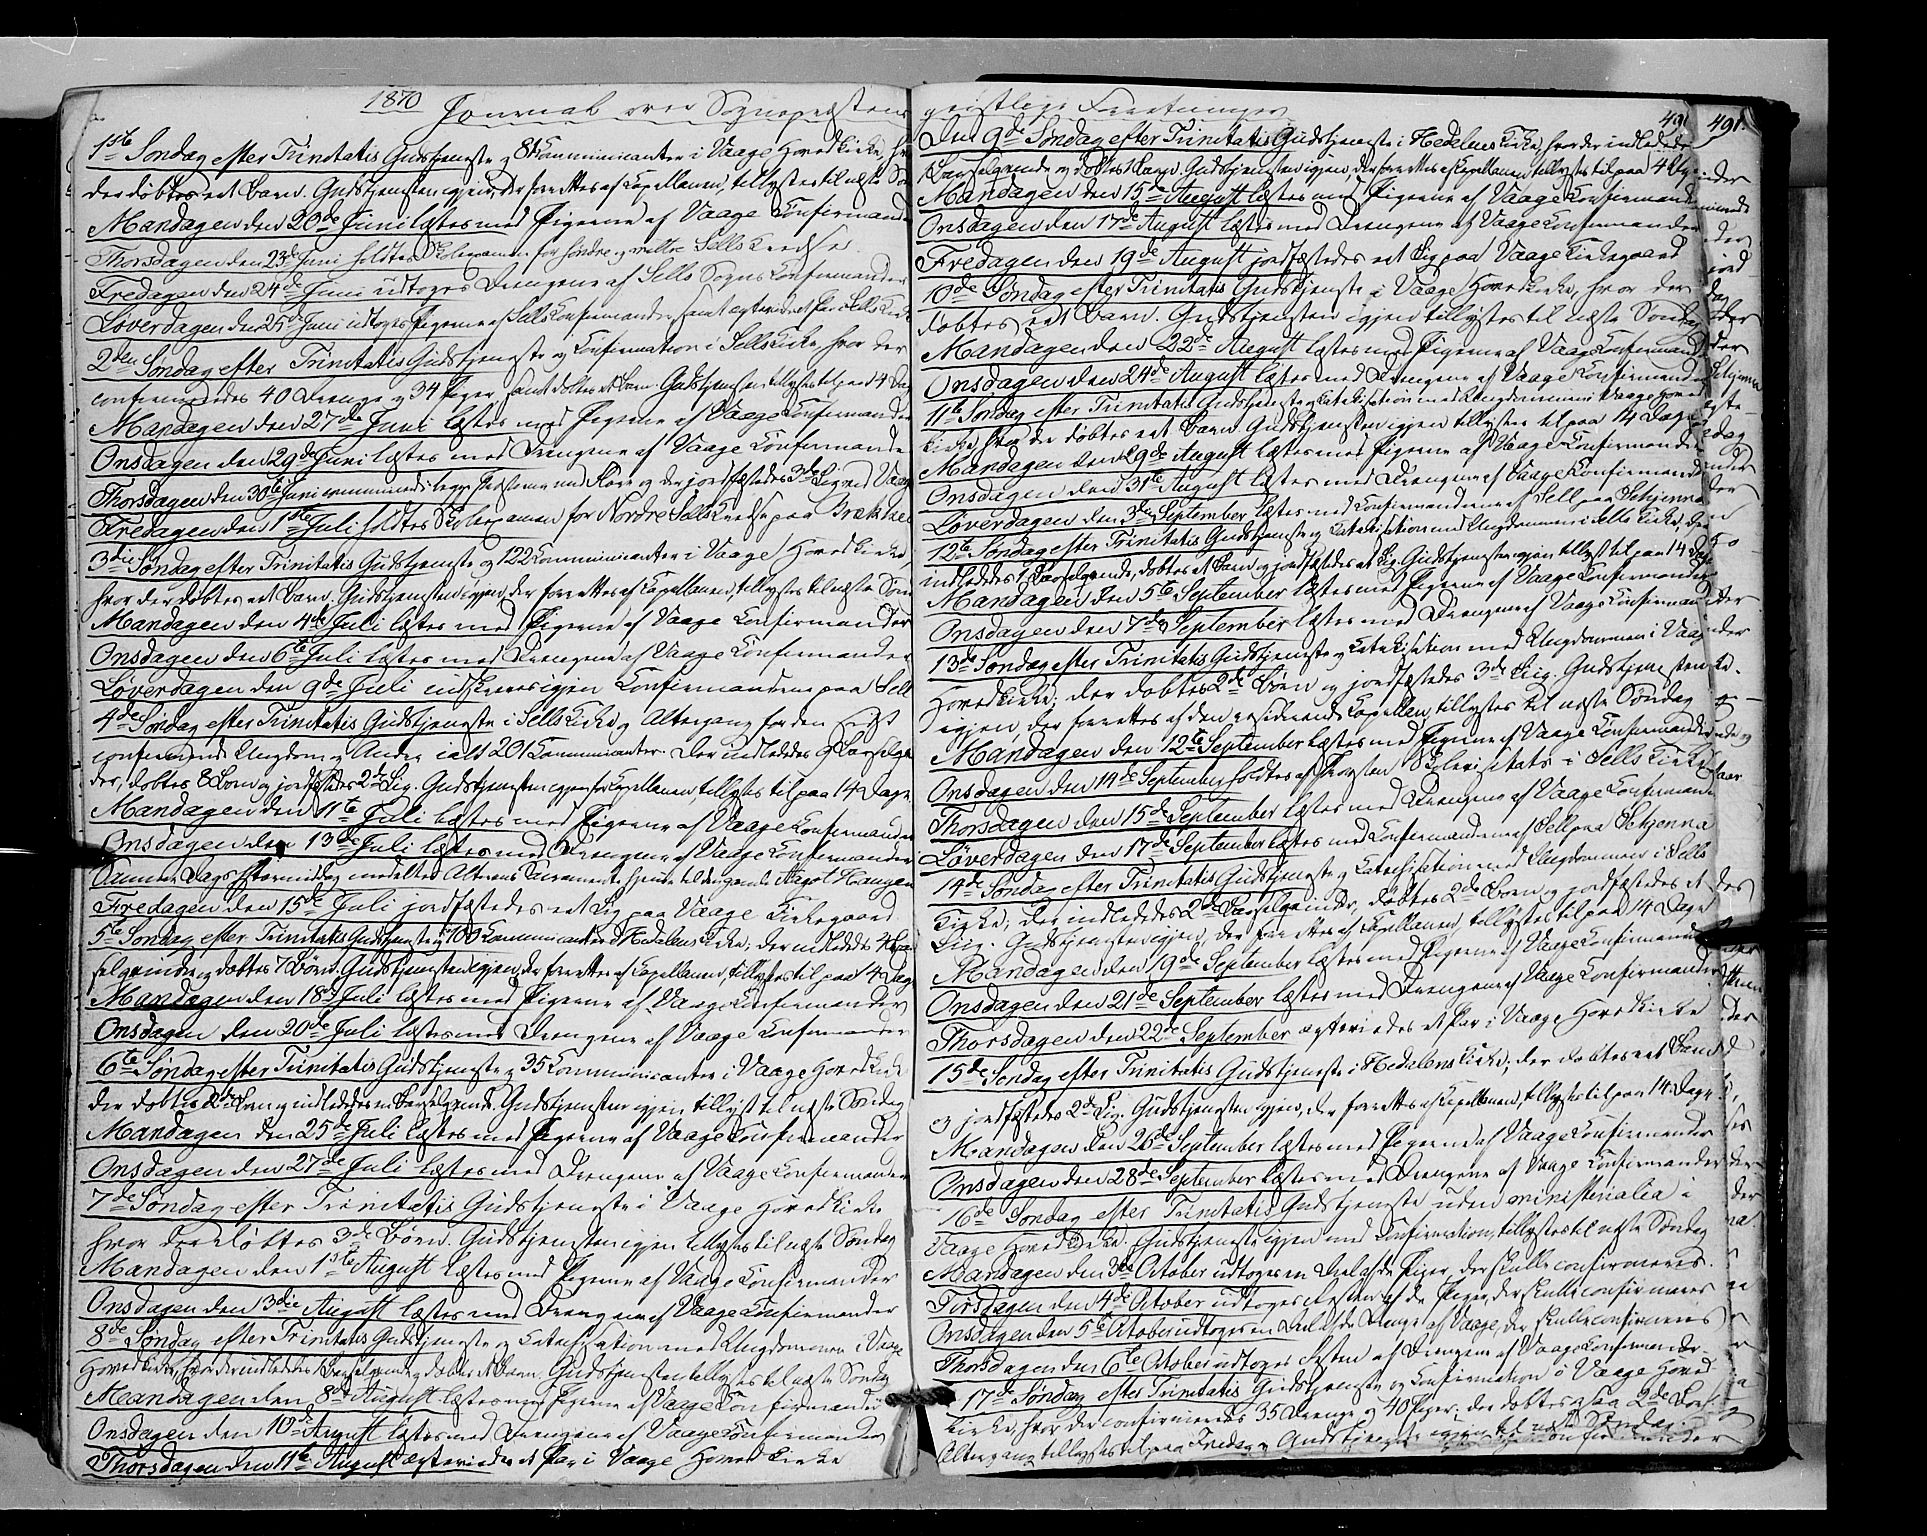 1870 Journal over Sognepræstens
1ste Søndag efter Trinitatis Gudstjeneste og 8 Kommunicanter i Vaage Hovedkirke, hvor
der døbtes eet Barn. Gudstjenesten igjen, der forrettes af Capellanen, tillystes til næste Søn
Mandagen den 20de Juni læstes med Pigerne af Vaage Confirmander
Thorsdagen den 23de Juni holdtes Skoleexamen for søndre og Sells Kredse.
Fredagen den 24de Juni udtoges Drengene af Sells Sogns Confirmander
Løverdagen den 25de Juni udtoges Pigerne af Sells Confirmander, samt egteviedes et Par i Sells Kirke
2den Søndag efter Trinitatis Gudstjeneste og Confirmation i Sells Kirke, hvor der
confirmeredes 40 Drenge og 34 Piger, samt døbtes et Barn. Gudstjenesten tillystes til paa 14 Dage
Mandagen den 27de Juni læstes med Pigerne af Vaage Confirmander
Onsdagen den 29de Juni læstes med Drengene af Vaage Confirmander
Thorsdagen den 30te Juni og der jordfæstedes 3de Lig ved Vaage
Fredagen den 1ste Juli holdtes Skoleexamen for Nordre Sells Kreds paa
3die Søndag efter Trinitatis Gudstjeneste og 122 Kommunicanter i Vaage Hovedkirke,
hvor der døbtes eet Barn. Gudstjenesten igjen, der forrettes af Capellanen, tillystes til næste Søn
Mandagen den 4de Juli læstes med Pigerne af Vaage Confirmander
Onsdagen den 6te Juli læstes med Drengene af Vaage Confirmander
Løverdagen den 9de Juli indskreves igjen Confirmanderne paa Sell
4de Søndag efter Trinitatis Gudstjeneste i Sells Kirke og Altergang for den sidst
confirmerede Ungdom og Andre ialt 201 Kommunicanter. Der indlededes 9 Barselqvin
der, døbtes 8 Børn og jordfæstedes 2de Lig. Gudstjenesten igjen for Capellanen, tillystes til paa 14 Dage
Mandagen den 11te Juli læstes med Pigerne af Vaage Confirmander
Onsdagen den 13de Juli læstes med Drengene af Vaage Confirmander
Samme Dags Formiddag meddeltes Alterens Sacramente hjemme til den gamle Aagot Haugen
Fredagen den 15de Juli jordfæstedes eet Lig paa Vaage Kirkegaard
5te Søndag efter Trinitatis Gudstjeneste og 100 Kommunicanter i Hedalens Kirke; der indlededes 4 Bar
selqvinder og døbtes 7 Børn. Gudstjenesten igjen, der forrettes af Capellanen, tillystes til paa 14 Dage
Mandagen den 18de Juli læstes med Pigerne af Vaage Confirmander
Onsdagen den 20de Juli læstes med Drengene af Vaage Confirmander
6te Søndag efter Trinitatis Gudstjeneste og 35 Kommunicanter i Vaage Hovedkirke
der døbtes 2de Børn og indlededes en Barselqvinde. Gudstjenesten igjen tillyst til næste Søndag
Mandagen den 25de Juli læstes med Pigerne af Vaage Confirmander
Onsdagen den 27de Juli læstes med Drengene af Vaage Confirmander
7de Søndag efter Trinitatis Gudstjeneste i Vaage Hovedkirke
hvor der døbtes 3de Børn. Gudstjenesten igjen tillystes til næste Søndag
Mandagen den 1ste August læstes med Pigerne af Vaage Confirmander
Onsdagen den 3die August læstes med Drengene af Vaage Confirmander
8de Søndag efter Trinitatis Gudstjeneste og Catechisation med Ungdommen i Vaage
Hovedkirke, hvor der indlededes 1 Barselqvinde og døbtes et Barn. Gudstjenesten tillystes til næste Søndag
Mandagen den 8de August læstes med Pigerne af Vaage Confirmander
Onsdagen den 10de August læstes med Drengene af Vaage Confirmander
Thorsdagen den 11te August egteviedes et Par i Vaage Hovedkirke
geistlige Forretninger
491.
Den 9de Søndag efter Trinitatis Gudstjeneste i Hedalens Kirke, hvor der indlededes
Barselqvinde og døbtes 1 Barn. Gudstjenesten igjen, der forrettes af Capellanen tillystes til paa 4 Uger
Mandagen den 15de August læstes med Pigerne af Vaage Confirmander
Onsdagen den 17de August læstes med Drengene af Vaage Confirmander
Fredagen den 19de August jordfæstedes eet Lig paa Vaage Kirkegaard
10de Søndag efter Trinitatis Gudstjeneste i Vaage Hovedkirke, hvor der
døbtes eet Barn. Gudstjenesten igjen tillystes til næste Søndag
Mandagen den 22de August læstes med Pigerne af Vaage Confirmander
Onsdagen den 24de August læstes med Drengene af Vaage Confirmander
11te Søndag efter Trinitatis Gudstjeneste og Catechisation med Ungdommen i Vaage Hoved
kirke, hvor der døbtes eet Barn. Gudstjenesten igjen tillystes til paa 14 Dage
Mandagen den 29de August læstes med Pigerne af Vaage Confirmander
Onsdagen den 31te August læstes med Drengene af Vaage Confirmander
Løverdagen den 3die September læstes med Confirmanderne af Sell paa Selsjenna
12te Søndag efter Trinitatis Gudstjeneste og Catechisation med Ungdommen i Sells Kirke, der
indlededes 1 Barselqvinde, døbtes et Barn og jordfæstedes et Lig. Gudstjenesten igjen tillyst til paa 14 Dage
Mandagen den 5te September læstes med Pigerne af Vaage Confirmander
Onsdagen den 7de September læstes med Drengene af Vaage Confirmander
13de Søndag efter Trinitatis Gudstjeneste og Catechisation med Ungdommen i Vaage
Hovedkirke; der døbtes 2de Børn og jordfæstedes 3de Lig. Gudstjenesten
igjen, der forrettes af den residerende Capellan, tillystes til næste Søndag
Mandagen den 12te September læstes med Pigerne af Vaage Confirmander
Onsdagen den 14de September holdtes af Provsten Skolevisitats i Sells Kirke
Thorsdagen den 15de September læstes med Drengene af Vaage Confirmander
Løverdagen den 17de September læstes med Confirmanderne af Sell paa Selsjenna
14de Søndag efter Trinitatis Gudstjeneste og Catechisation med Ungdommen i Sells
Kirke; der indlededes 2de Barselqvinder, døbtes 2de Børn og jordfæstedes et
Lig. Gudstjenesten igjen, der forrettes af Capellanen, tillystes til paa 14 Dage
Mandagen den 19de September læstes med Pigerne af Vaage Confirmander
Onsdagen den 21de September læstes med Drengene af Vaage Confirmander
Thorsdagen den 22de September egteviedes et Par i Vaage Hovedkirke
15de Søndag efter Trinitatis Gudstjeneste i Hedalens Kirke; der døbtes eet Barn
og jordfæstedes 2de Lig. Gudstjenesten igjen, der forrettes af Capellanen, tillystes til paa 14 Dage
Mandagen den 26de September læstes med Pigerne af Vaage Confirmander
Onsdagen den 28de September læstes med Drengene af Vaage Confirmander
16de Søndag efter Trinitatis Gudstjeneste uden ministerialia i
Vaage Hovedkirke. Gudstjeneste igjen med Confirmation, tillystes til næste Søndag
Mandagen den 3die October udtoges en Deel af de Piger, der skulle confirmeres.
Tirsdagen den 4de October udtoges Resten af de Piger, der skulle confirmeres
Onsdagen den 5te October udtoges en Deel af de Drenge af Vaage, der skulle confirmeres
Thorsdagen den 6te October udtoges Resten af Drengene af Vaage Confirmander.
17de Søndag efter Trinitatis Gudstjeneste og Confirmation i Vaage Hoved
kirke, hvor der confirmeredes 35 Drenge og 40 Piger; der døbtes ogsaa 2de Børn.
Altergang tillystes til paa Fredag og Gudstjeneste igjen til næste Søndag.